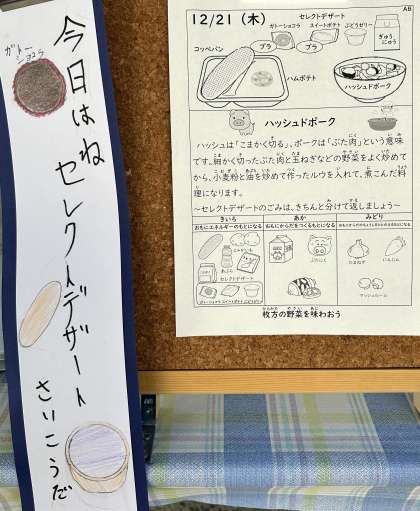 ガトー
ショコラ
今日はね
セレクトデザート
さいこうだ
AB
12/21(木)
セレクトデザート
ガトーショコラ
スイートポテト
ぶどうゼリー
プラ
プラ
ぎゅうにゅう
コッペパン
ハムポテト
ハッシュドポーク
ハッシュドポーク
ハッシュは「こまかく切る」、ポークは「ぶた肉」という意味
です。細かく切ったぶた肉と玉ねぎなどの野菜をよく炒めて
から、小麦粉と油を炒めて作ったルウを入れて、煮こんだ料
理になります。
~セレクトデザートのごみは、きちんと分けて返しましょう~
きいろ
あか
みどり
おもにエネルギーのもとになる
おもにからだをつくるもとになる
じゃがいも
あぶら
セレクトデザート
ガトーショコラ
スイートポテト
ぶどうゼリー
ぶたにく
たまねぎ
にんじん
マッシュルーム
枚方の野菜を味わおう